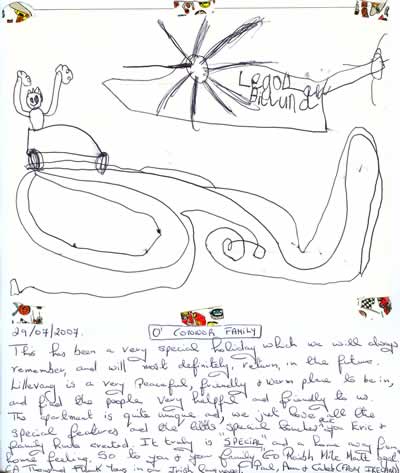 Legoland
Billund
29/07/2007.
O' CONNOR FAMILY
This has been a very special holiday which we will always
remember, and will most definitely, return, in the future.
Lillevang is a very Peaceful, friendly & warm place to be in,
and find the people very helpful and friendly to us.
The apartment is quite unique and, we just love all the
special features and the little special touches you Eric &
family Ruds created. It truly is "SPECIAL" and a home away from
home feeling. So to you & your family Go Raibh Mile Maith agat
"A Thousand Thank You's in our Irish language. Paul, Pam & IRELAND